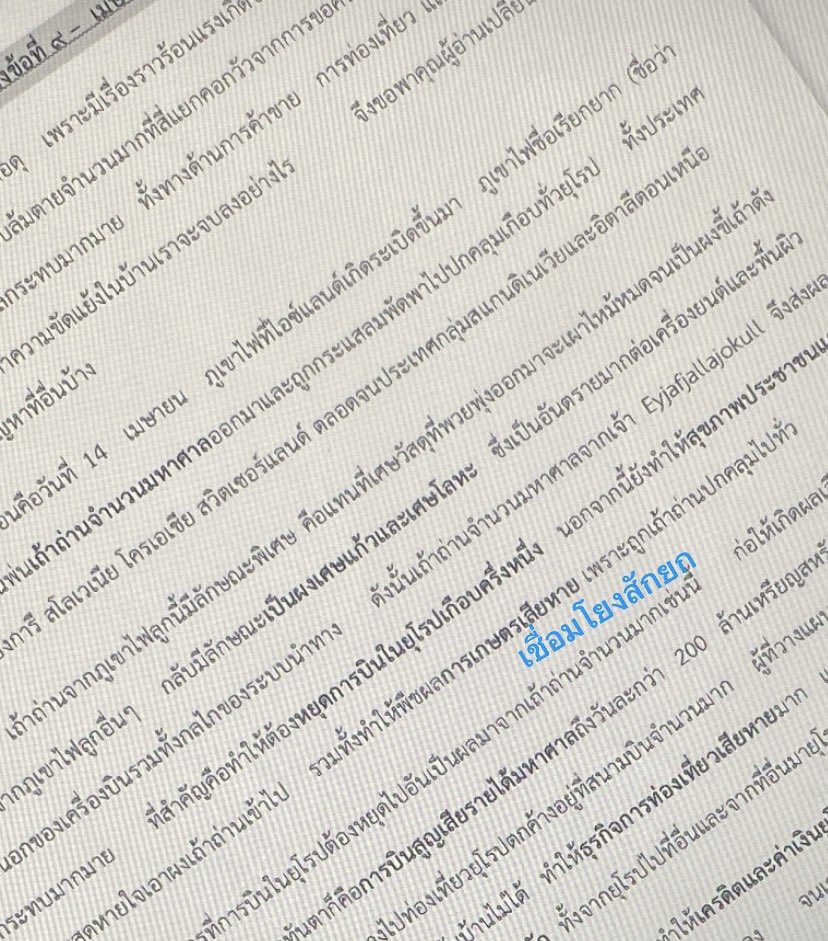 งข้อที่ ๙ - เม
อดุ เพราะมีเรื่องราวร้อนแรงเกิด
บล้มตายจำนวนมากที่สี่แยกคอกวัวจากการขอ
กระทบมากมาย ทั้งทางด้านการค้าขาย การท่องเที่ยว
าความขัดแย้งในบ้านเราจะจบลงอย่างไร จึงขอพาคุณผู้อ่านเปลี่ย
ญหาที่อื่นบ้าง
อนคือวันที่ 14 เมษายน ภูเขาไฟที่ไอซ์แลนด์เกิดระเบิดขึ้นมา ภูเขาไฟชื่อเรียกยาก (ชื่อว่า
นพ่นเถ้าถ่านจำนวนมหาศาลออกมาและถูกกระแสลมพัดพาไปปกคลุมเกือบทั่วยุโรป ทั้งประเทศ
งการี สโลเวเนีย โครเอเชีย สวิตเซอร์แลนด์ ตลอดจนประเทศกลุ่มสแกนดิเนเวียและอิตาลีตอนเหนือ
เถ้าถ่านจากภูเขาไฟลูกนี้มีลักษณะพิเศษ คือแทนที่เศษวัสดุที่พวยพุ่งออกมาจะเผาไหม้หมดจนเป็นผงขี้เถ้าดัง
ากภูเขาไฟลูกอื่นๆ กลับมีลักษณะเป็นผงเศษแก้วและเศษโลหะ ซึ่งเป็นอันตรายมากต่อเครื่องยนต์และพื้นผิว
นอกของเครื่องบินรวมทั้งกลไกของระบบนำทาง ดังนั้นเถ้าถ่านจำนวนมหาศาลจากเจ้า Eyjafjallajokull จึงส่งผล
กระทบมากมาย ที่สำคัญคือทำให้ต้องหยุดการบินในยุโรปเกือบครึ่งหนึ่ง นอกจากนี้ยังทำให้สุขภาพประชาชนแ
สูดหายใจเอาผงเถ้าถ่านเข้าไป รวมทั้งทำให้พืชผลการเกษตรเสียหาย เพราะถูกเถ้าถ่านปกคลุมไปทั่ว
เชื่อมโยงสักยถ
รที่การบินในยุโรปต้องหยุดไปอันเป็นผลมาจากเถ้าถ่านจำนวนมากเช่นนี้ ก่อให้เกิดผลเสี
ทันตาก็คือการบินสูญเสียรายได้มหาศาลถึงวันละกว่า 200 ล้านเหรียญสหรั
งไปท่องเที่ยวยุโรปตกค้างอยู่ที่สนามบินจำนวนมาก ผู้ที่วางแผน
บ้านไม่ได้ ทำให้ธุรกิจการท่องเที่ยวเสียหายมาก
ทั้งจากยุโรปไปที่อื่นและจากที่อื่นมายุโร
ทำให้เครดิตและค่าเงินยู